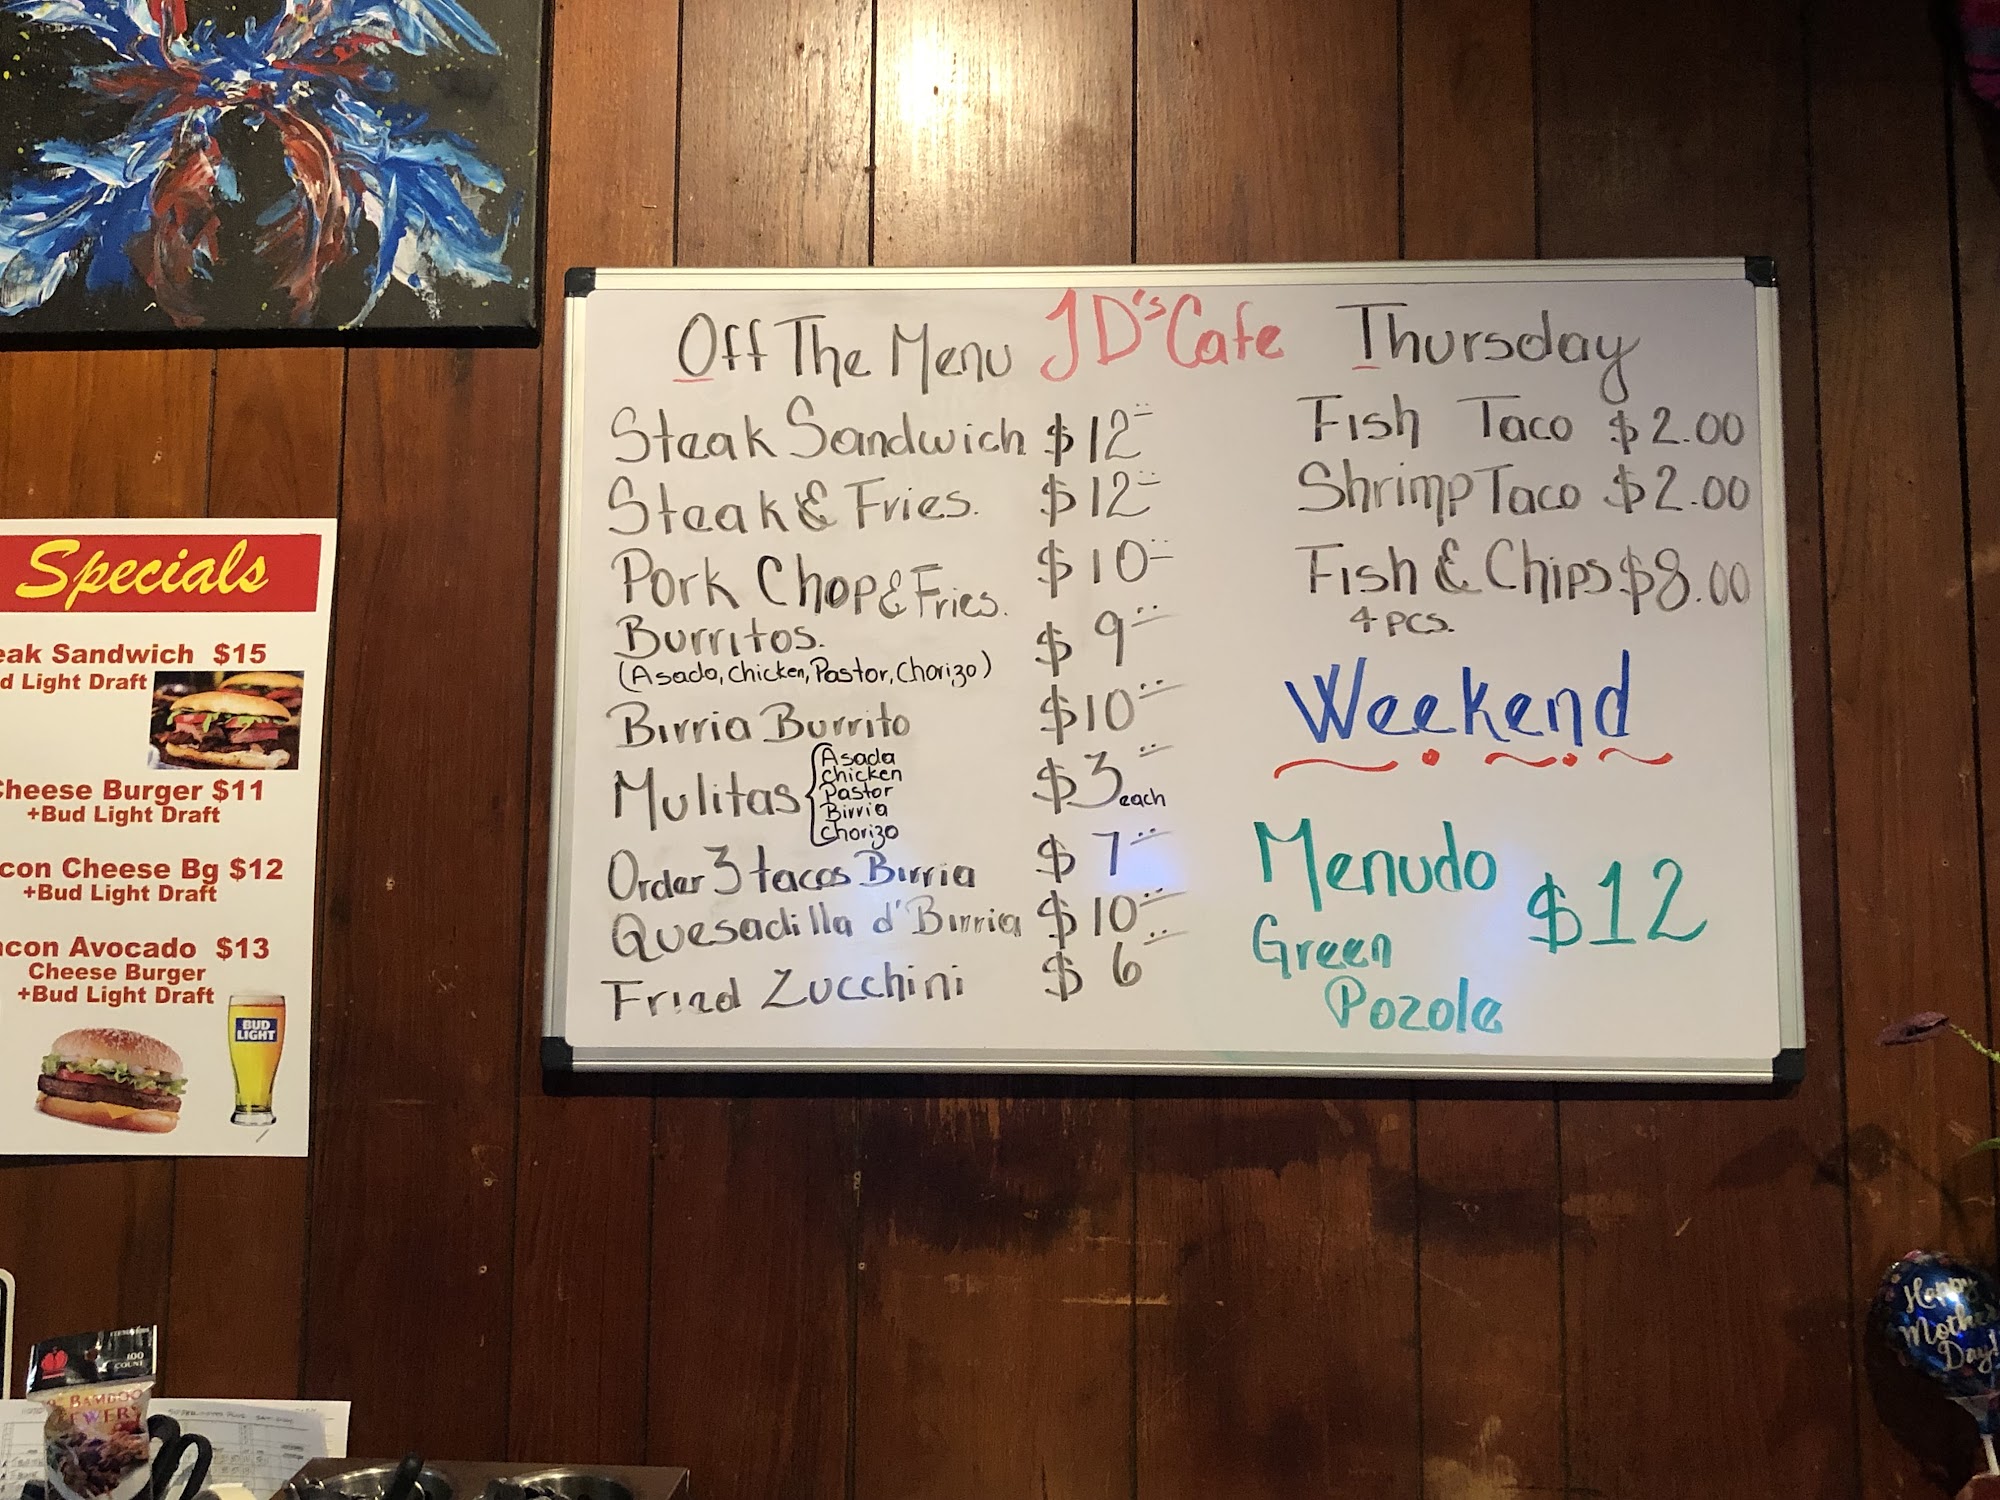 Off The Menu JD's Cafe Thursday
Steak Sandwich $12
Steak & Fries. $12
Pork Chop & Fries. $10
Burritos. $9
(Asado, Chicken, Pastor, Chorizo)
Birria Burrito $10
Mulitas $3 each
Asada
Chicken
Pastor
Birria
Chorizo
Order 3 tacos Birria $7
Quesadilla d'Birria $10
Fried Zucchini $6
Fish Taco $2.00
Shrimp Taco $2.00
Fish & Chips $8.00
4 PCS.
Weekend
Menudo
Green
Pozole
$12
Specials
eak Sandwich $15
d Light Draft
Cheese Burger $11
+Bud Light Draft
con Cheese Bg $12
+Bud Light Draft
acon Avocado $13
Cheese Burger
+Bud Light Draft
BUD
LIGHT
100
COUNT
BAMBOO
Happy
Mothe
Day!